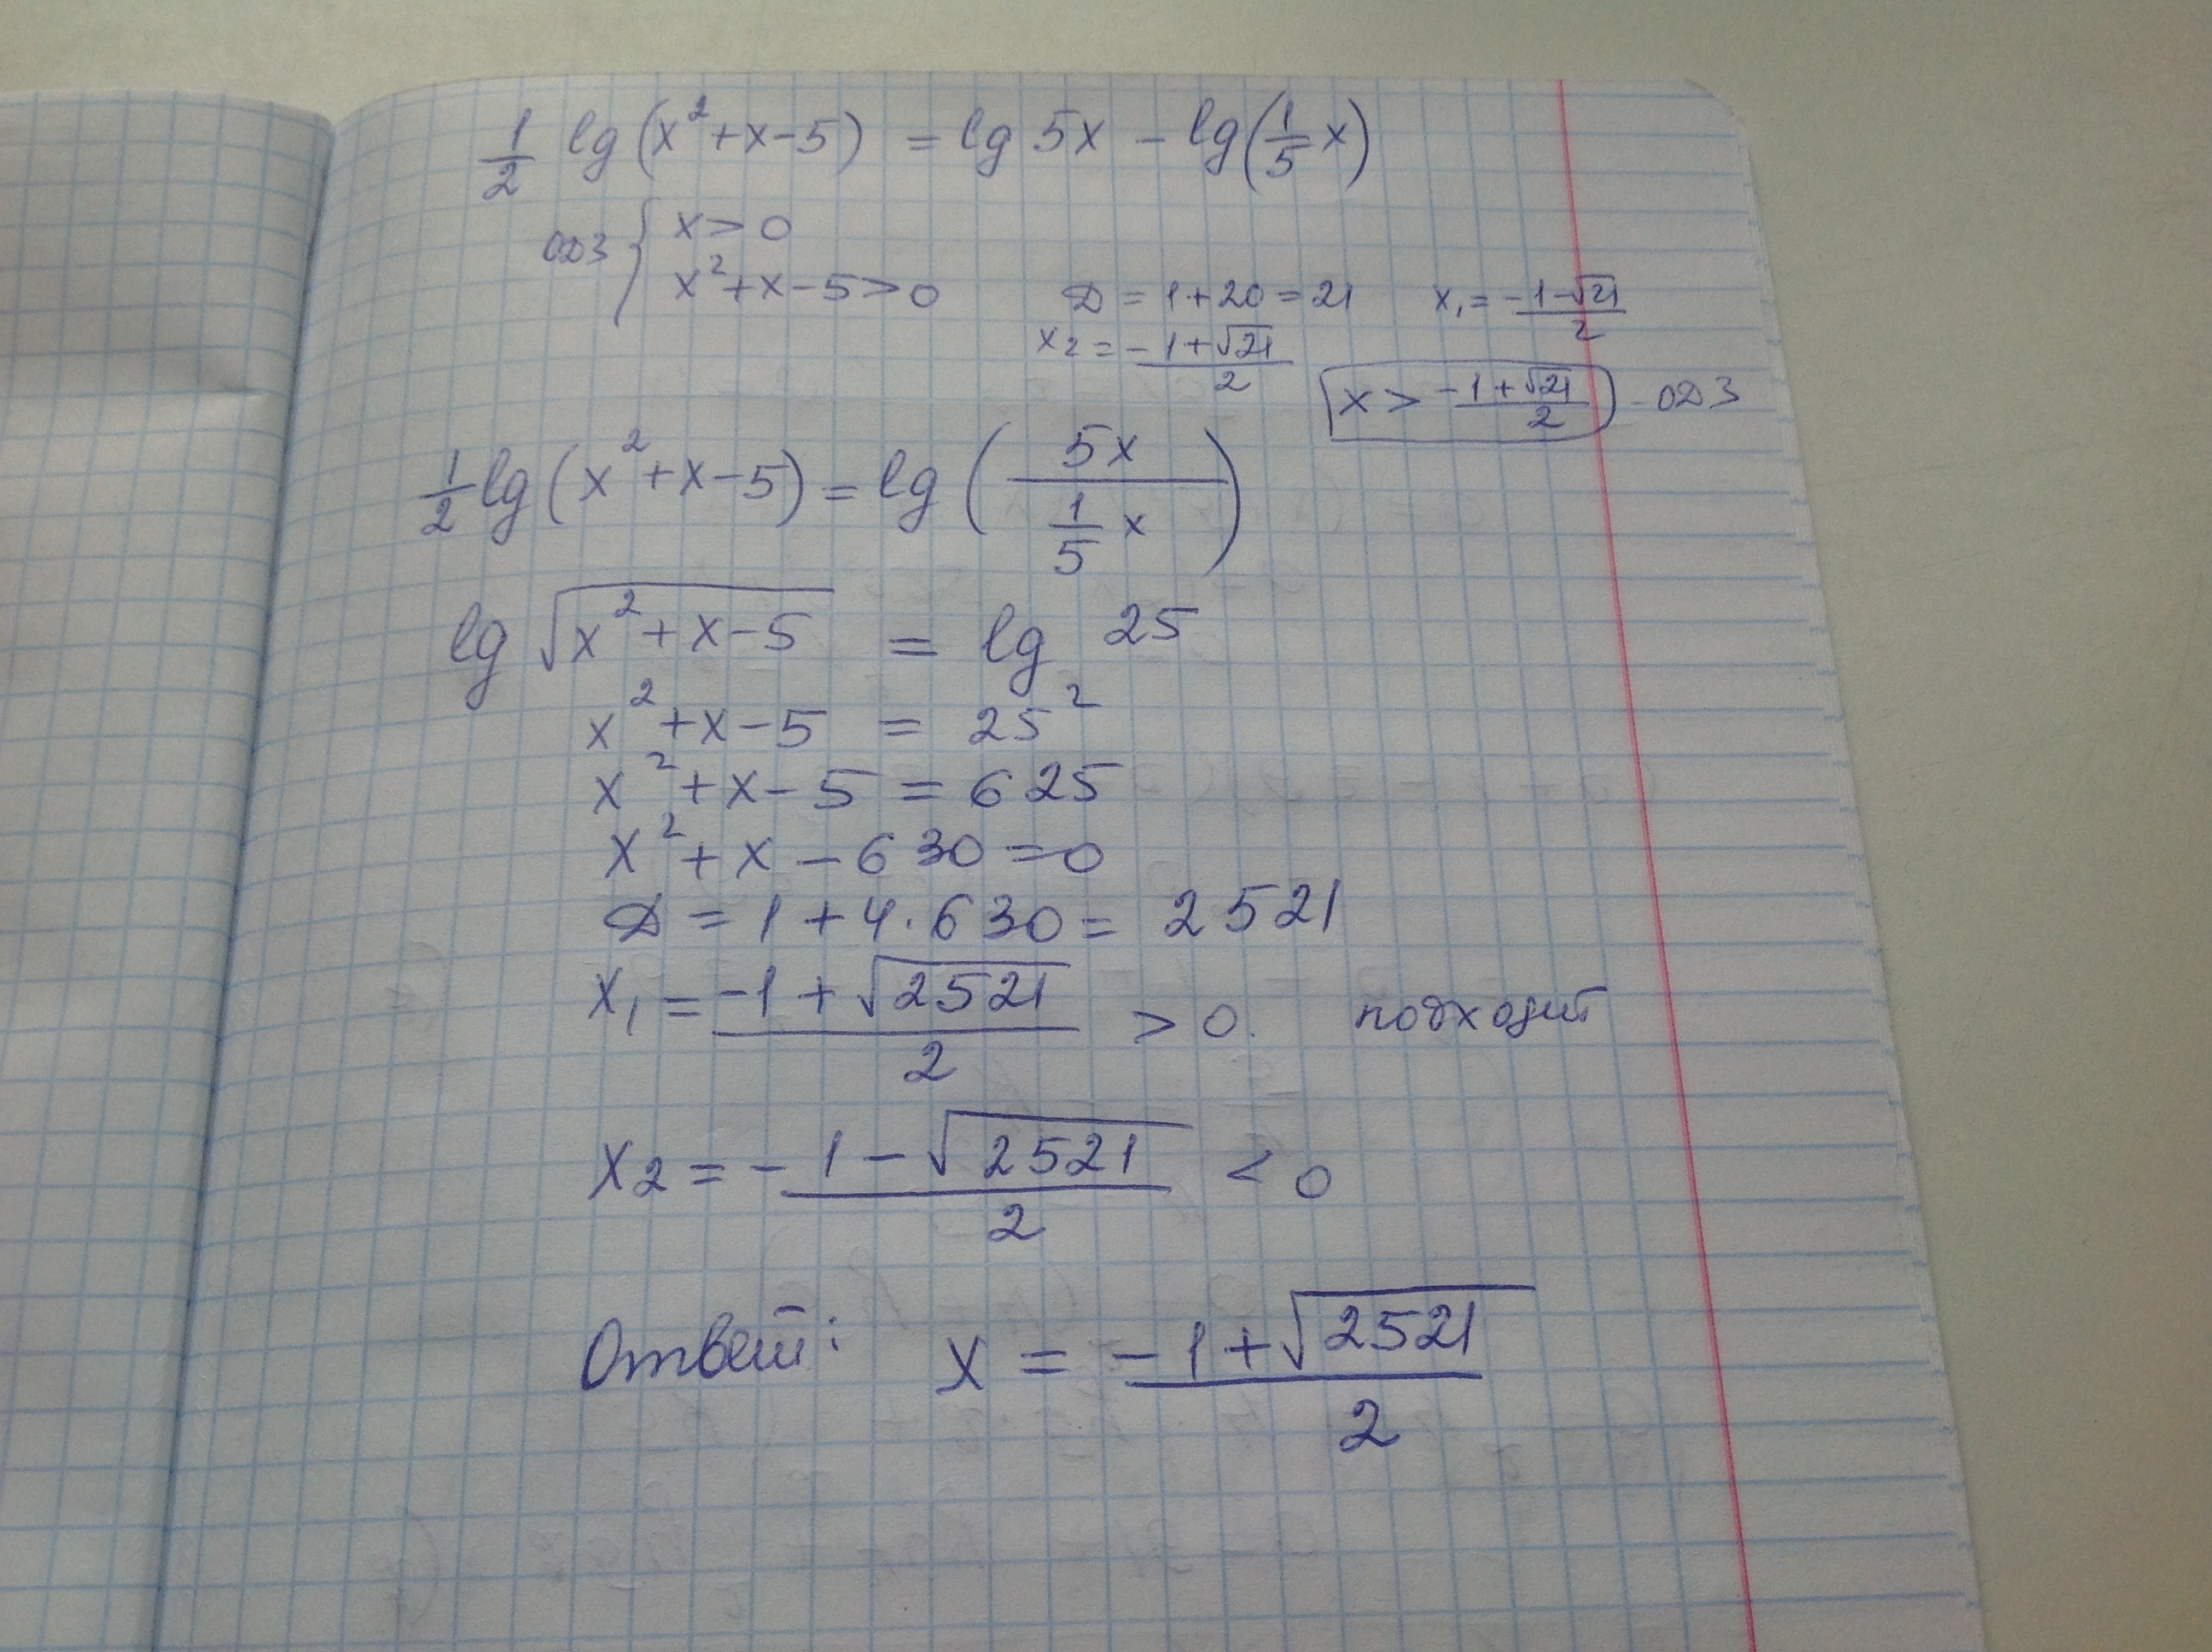 1/2 lg(x²+x-5) = lg 5x - lg(1/5 x)
ОДЗ { x>0
x²+x-5>0
D = 1+20=21 x₁ = (-1-√21)/2
x₂ = (-1+√21)/2
x > (-1+√21)/2 - ОДЗ
1/2 lg(x²+x-5) = lg(5x / (1/5 x))
lg √(x²+x-5) = lg 25
x²+x-5 = 25²
x²+x-5 = 625
x²+x-630=0
D = 1+4·630 = 2521
x₁ = (-1+√2521)/2 > 0. подходит
x₂ = (-1-√2521)/2 < 0
Ответ: x = (-1+√2521)/2